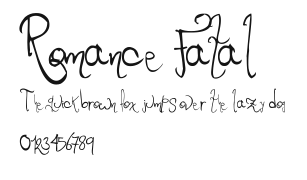 Romance Fatal
The quick brown fox jumps over the lazy dog
0123456789